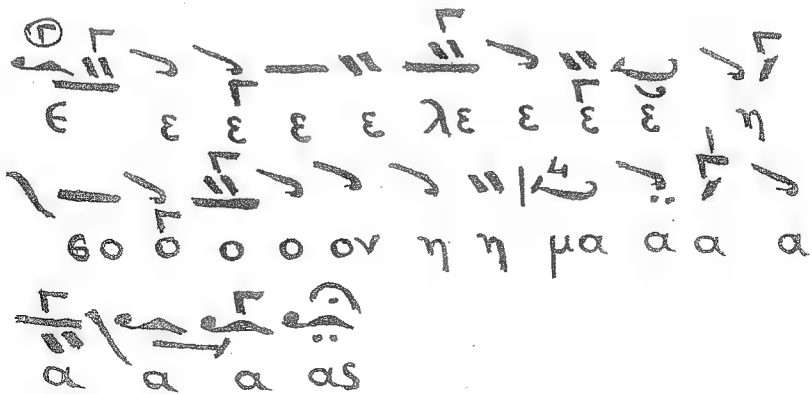 ϵ ε ε ε ε λε ε ε ε η
σο ο ο ο ον η η μα α α α
α α α ας